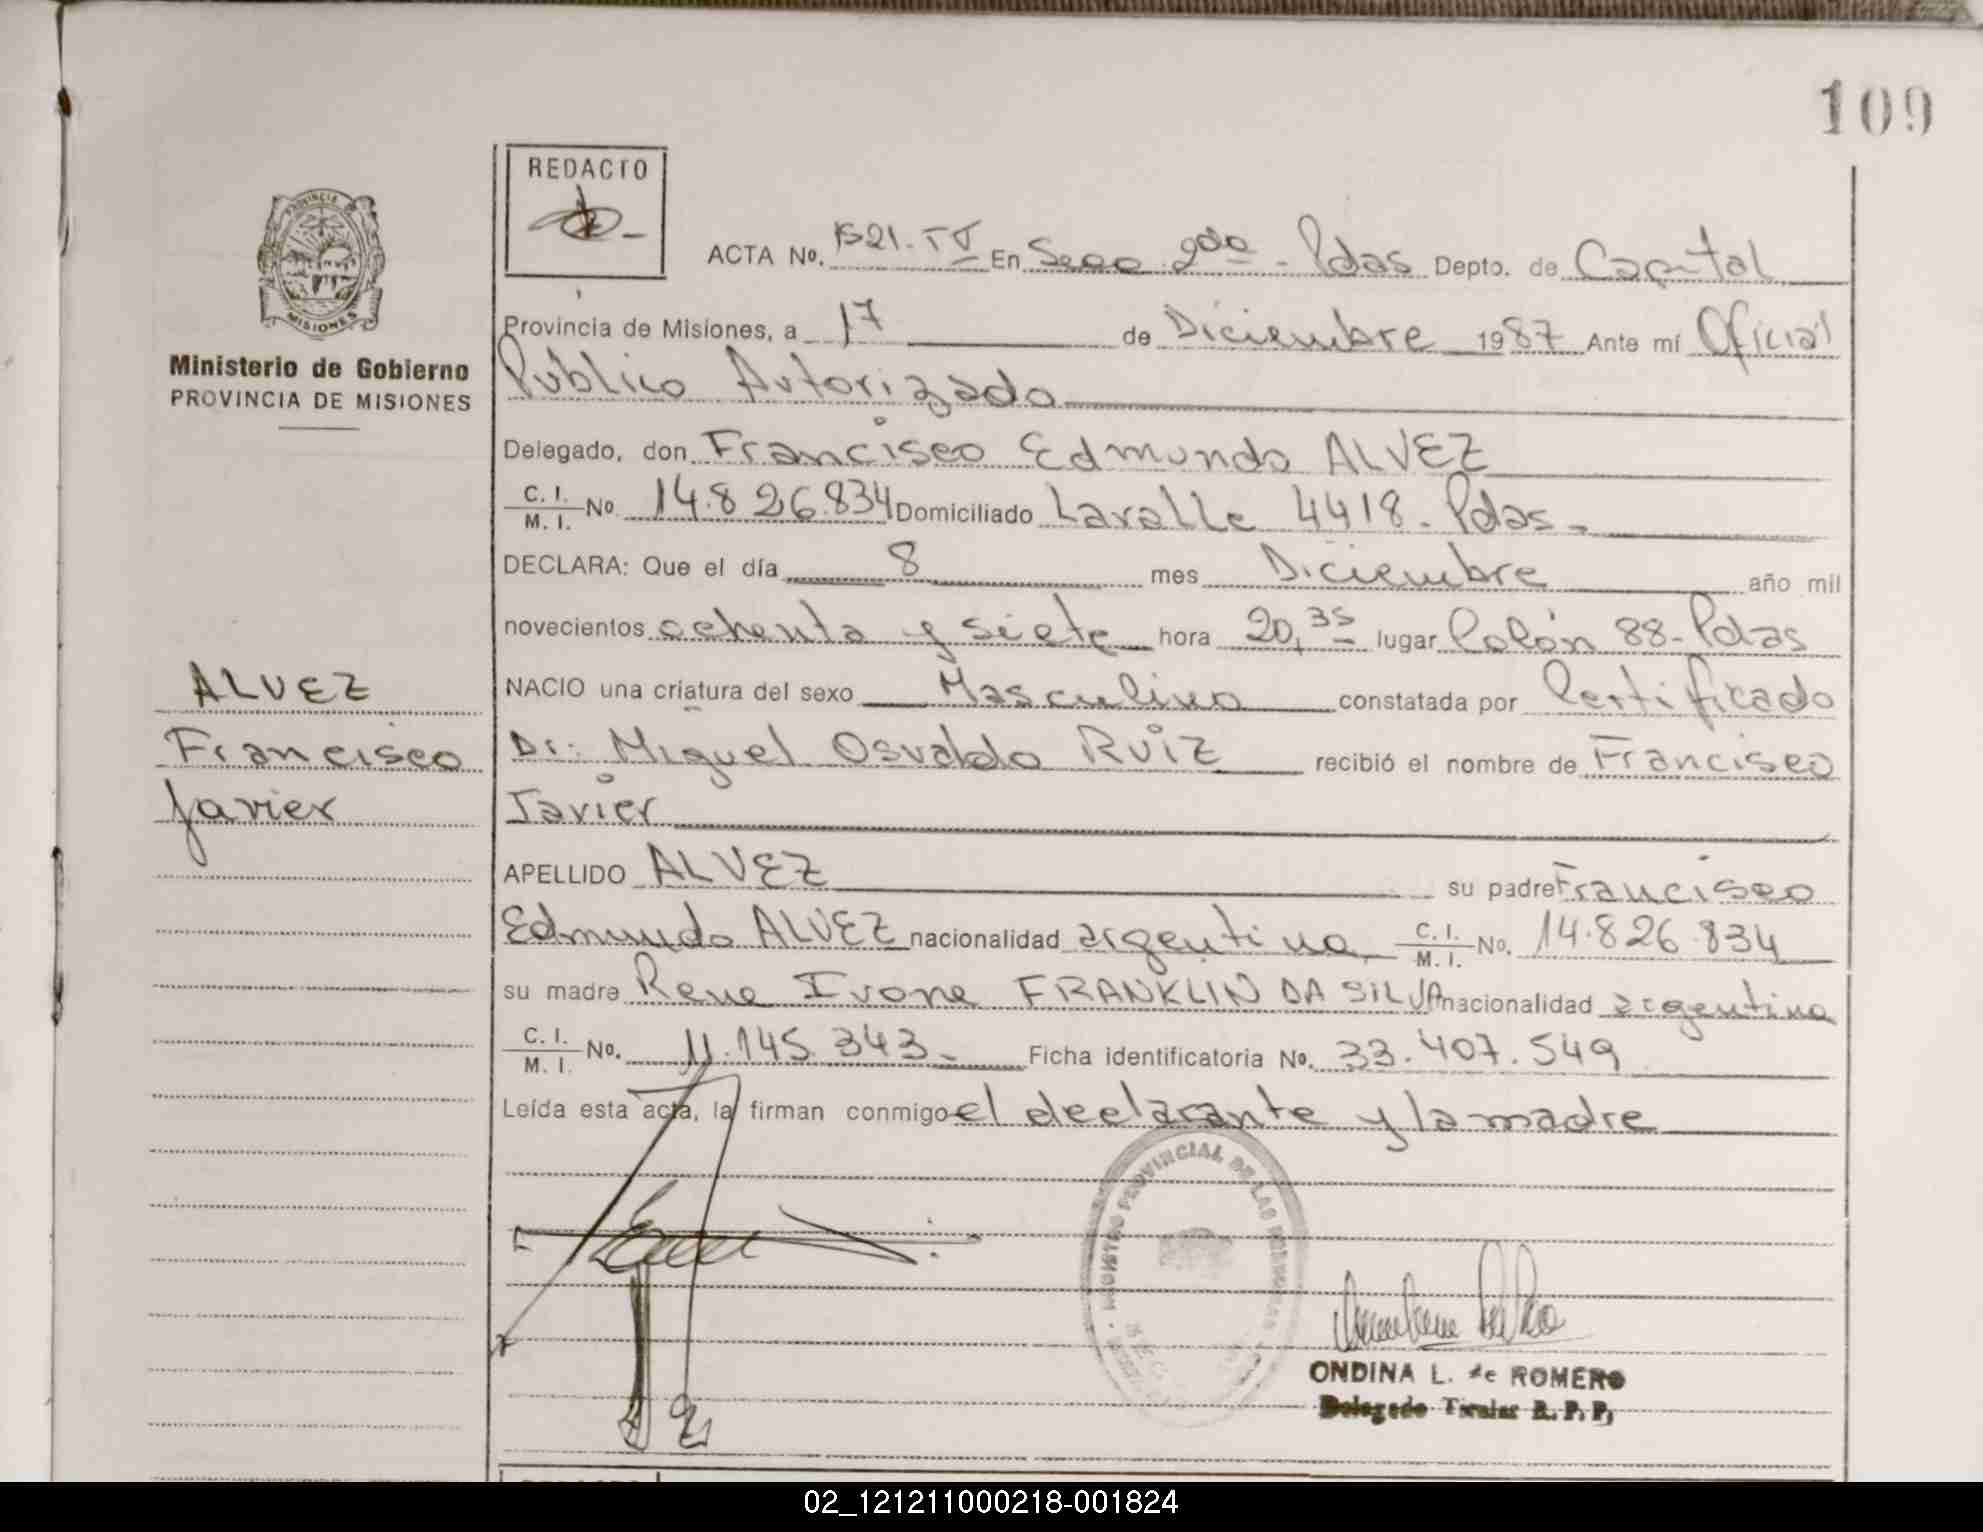 109
REDACTO
ACTA No. 1521-IV En Secc 2da - Pdas Depto. de Capital
PROVINCIA
MISIONES
Provincia de Misiones, a 17 de Diciembre 1987 Ante mí Oficial
Ministerio de Gobierno
PROVINCIA DE MISIONES
Público Autorizado
Delegado, don Francisco Edmundo ALVEZ
C. I. M. I. No. 14.826.834 Domiciliado Lavalle 4418 - Pdas -
DECLARA: Que el día 8 mes Diciembre año mil
novecientos ochenta y siete hora 20,35 lugar Colón 88 - Pdas
ALVEZ
NACIO una criatura del sexo Masculino constatada por Certificado
Francisco
Dr: Miguel Osvaldo RUIZ recibió el nombre de Francisco
Javier
Javier
APELLIDO ALVEZ su padre Francisco
Edmundo ALVEZ nacionalidad argentina C. I. M. I. No. 14.826.834
su madre Rene Ivone FRANKLIN DA SILVA nacionalidad argentina
C. I. M. I. No. 11.145.343 - Ficha identificatoria No. 33.407.549
Leída esta acta, la firman conmigo el declarante y la madre
REGISTRO PROVINCIAL DE LAS PERSONAS
ONDINA L. de ROMERO
Delegado Titular R. P. P.
02_121211000218-001824